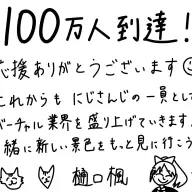 100万人到達!
応援ありがとうございます
これからも にじさんじの一員として
バーチャル業界を盛り上げていきます
緒に新しい景色をもっと見に行こう
樋口楓